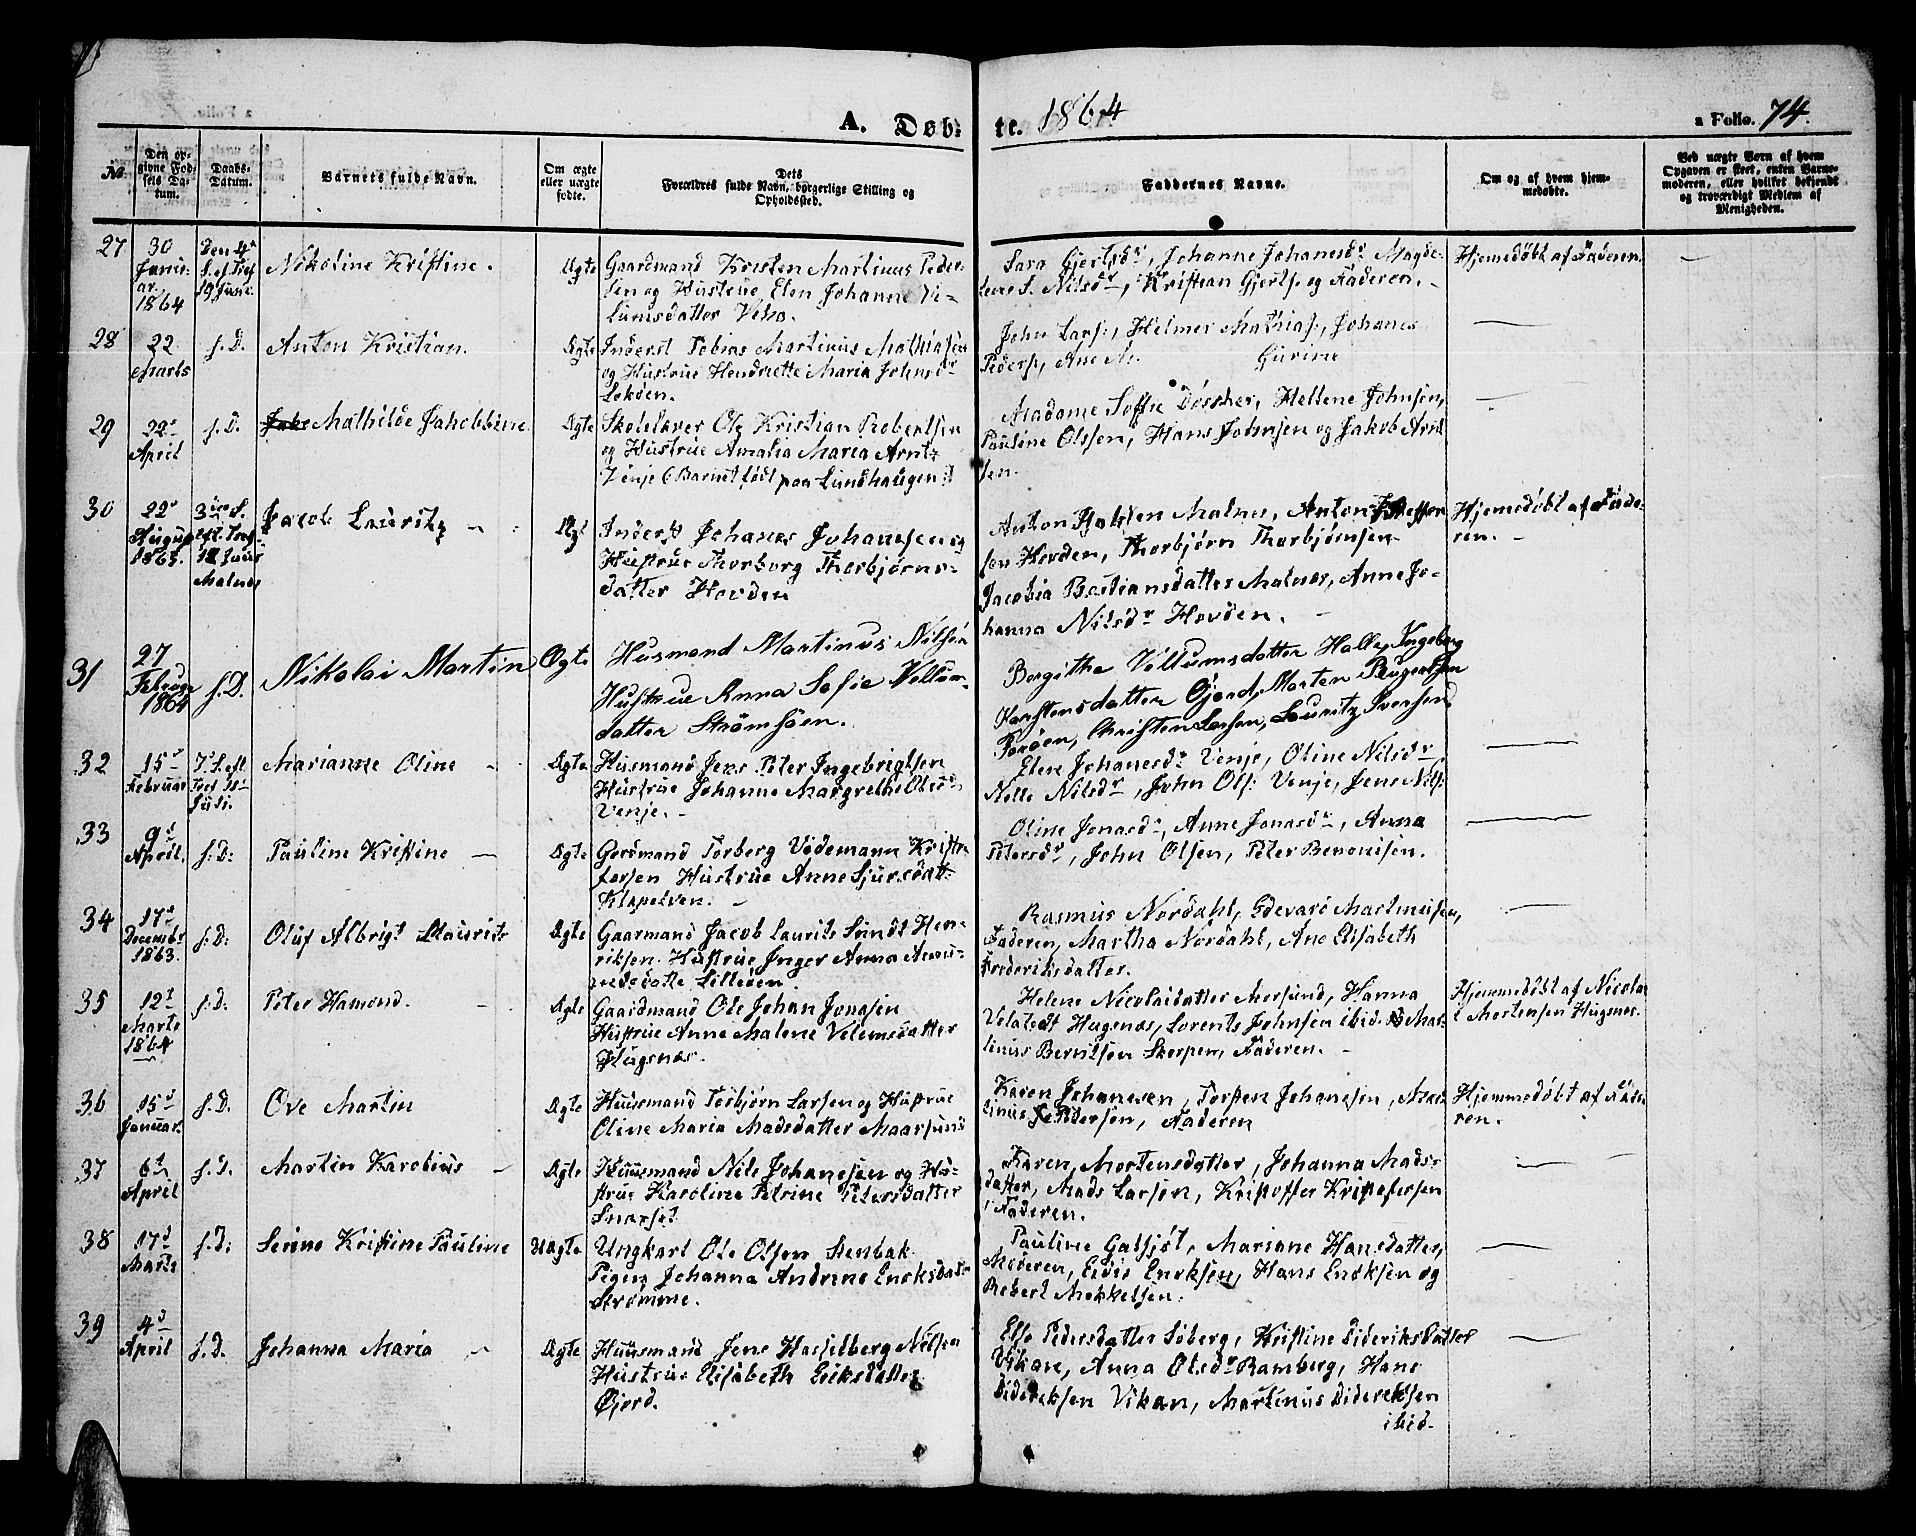 A. Døbte. 1864
a Folio. 74.
No.
Den opgivne Fødsels Datum.
Daabs-Datum.
Barnets fulde Navn.
Om ægte eller uægte fødte.
Dets Forældres fulde Navn, borgerlige Stilling og Opholdssted.
Faddernes Navne.
Om og af hvem hjemmedøbte.
Ved uægte Børn af hvem Opgaven er skeet, enten Barnemoderen, eller hvilket bekjendt og troværdigt Medlem af Menigheden.
27
30 Januar 1864
Den 4de S. ef. Tref 19 Juni
Nikoline Kristine.
Ægte
Gaardmand Kristen Martinus Peder-
sen og Hustrue Elen Johanne Vi-
lumsdatter Veko.
Sara Gjertsdr, Johanne Johanesdr Magde-
lene S. Nilsdr, Kristian Gjerts. og Faderen.
Hjemedøbt af Faderen
28
22 Marts
s. D.
Anton Kristian.
Ægte
Inderst Tobias Martinus Mathiasen
og Hustrue Hendriette Maria Johnsdr
Lekden.
John Lars:, Helmer Mathias:, Johanes
Peders, Ane M. Gurine
29
22d April
s. D.
Mathilde Jakobbine
Ægte
Skolelærer Ole Kristian Robertsen
og Hustrue Amalia Maria Arntz
Venje (Barnet født paa Lundhaugen)
Madame Soffie Doscher, Hellene Johnsen,
Pauline Olssen, Hans Johnsen og Jakob Arild
sen.
30
22d August 1863.
3die S. eft. Tref 12 Juni Malnæs
Jacob Lauritz
Ægt
Inderst Johanes Johanesen og
Hustrue Thorborg Thorbjørns-
datter Hovden
Anton Halsten Malnes, Anton Steffen
sen Hovden, Thorbjørn Thorbjørnsen
Jacobia Bastiansdatter Malnæs, Anne Jo-
hanna Nilsdr Hovden.
Hjemedøbt af Fade-
ren.
31
27 Februar 1864
s. D.
Nikolai Martin
Ægte
Husmand Martinus Nilsen
Hustrue Anna Sofie Vellum-
datter Strømsøen.
Bergithe Villumsdatter Halle, Ingeborg
Karstensdatter Gjerd, Morten Rugertsen
Forøen, Christen Larsen, Lauritz Iversen
32
15d Februar
7. S. eft Tref Juli.
Marianne Oline
Ægte
Husmand Jens Peter Ingebrigtsen
Hustrue Johanne Margrethe Olesdr
Venje.
Elen Johanesdr Venje, Oline Nilsdr
Nelle Nilsdr, John Ols: Venje, Jens Nils:
33
9d April.
s. D:
Pauline Kristine
Ægte
Gordmand Torberg Vedemann Kristo
fersen Hustrue Anne Sjursdatt
Klapelven.
Oline Jonasdr, Anne Jonasdr, Anna
Petersdr, John Olsen, Peter Benonisen.
34
17d Decembr 1863.
s. D:
Oluf Albrigt Laurits
Ægte
Gaarmand Jacob Laurits Sundt Hen-
riksen. Hustrue Inger Anna Amu-
ndsdatte Lilleøen.
Rasmus Nordahl, Edevard Martineisen,
Faderen, Martha Nordahl, Ane Elisabeth
Frederiksdatter.
35
12d Marts 1864
s. D:
Peter Hamond.
Ægte
Gaardmand Ole Johan Jonasen
Hustrue Anne Malene Velemsdatter
Hugenæs.
Helene Nicolaidatter Morsund, Hanna
Velatedt Hugenæs, Lorents Johnsen ibid. Mar-
tinius Berntsen Skorpen, Faderen.
Hjemmedøbt af Nicola
i Mortensen Hugnes.
36
15d Januar.
s. D.
Ove Martin
Ægte
Huusmand Torbjørn Larsen og Hustrue
Oline Maria Madsdatter Maarsund
Karen Johanesen, Torsten Johanesen,
Pedersen, Faderen
Hjemmedøbt af Fade
ren.
37
6d April
s. D.
Martin Karolius
Ægte
Huusmand Nils Johanesen og Hu-
strue Karoline Petrine Petersdatter
Snarset
Karen Mortensdatter, Johanna Mads-
datter, Mads Larsen, Kristoffer Kristofersen
Faderen.
38
17d Marts
s. D:
Serine Kristine Pauline
Uægte
Ungkart Ole Olsen Stenbak
Pigen Johanna Andrine Enoksdatr
Strømme.
Pauline Gatsjøt, Mariane Hansdatter,
Moderen, Eidis Enoksen, Hans Enoksen og
Robert Mekkelsen.
39
4d April
s. D.
Johanna Maria
Ægte
Huusmand Jens Hasselberg Nelsen
Hustrue Elisabeth Eriksdatter
Gjerd.
Else Pedersdatter Søberg, Kristine Dideriksdatter
Vikan, Anna Olesdr Ramberg, Hans
Dideriksen Vikan, Martinus Dideriksen
ibid.